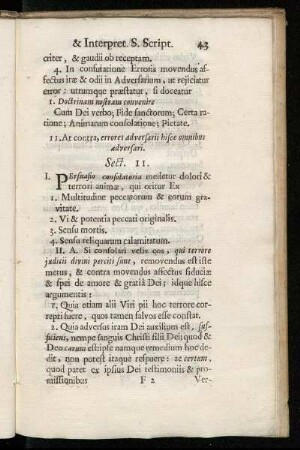 & Interpret. S. Script. 43
criter, & gaudii ob receptam.
4. In confutatione Erroris movendus af-
fectus iræ & odii in Adversarium, ut rejiciatur
error: utrumque præstatur, si doceatur
1. Doctrinam nostram convenire
Cum Dei verbo; Fide sanctorum; Certa ra-
tione; Animarum consolatione; Pietate.
11. At contra, errores adversarii hisce omnibus
adversari.
Sect. 11.
I. PErsuasio consolatoria medetur dolori &
terrori animæ, qui oritur Ex
1. Multitudine peccatorum & eorum gra-
vitate.
2. Vi & potentia peccati originalis.
3. Sensu mortis.
4. Sensu reliquarum calamitatum.
II. A. Si consolari velis eos, qui terrore
judicii divini perciti sunt, removendus est iste
metus, & contra movendus affectus fiduciæ
& spei de amore & gratiâ Dei; idque hisce
argumentis:
1. Quia etiam alii Viri pii hoc terrore cor-
repti fuere, quos tamen salvos esse constat.
2. Quia adversus iram Dei auxilium est, suf-
ficiens, nempe sanguis Christi filii Dei; quod &
Deo carum est ipse namque remedium hoc de-
dit, non potest itaque respuere: ac certum,
quod patet ex ipsius Dei testimoniis & pro-
missionibus F 2 Ver-